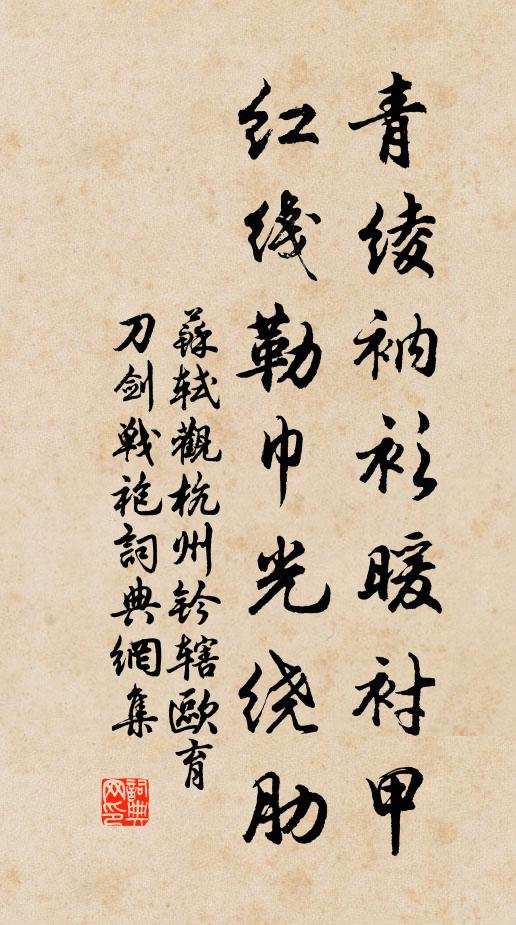 青绫衲衫暖衬甲
红线勒巾光绕肋
蘇轼觀杭州鈐辖歐育
刀劍戰袍詞典網集
詞典网印